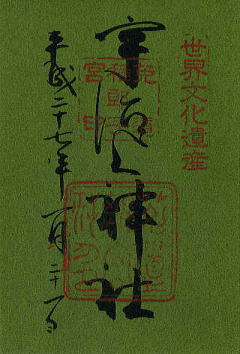 世界文化遺産
宇治上神社
平成二十七年一月二十一日